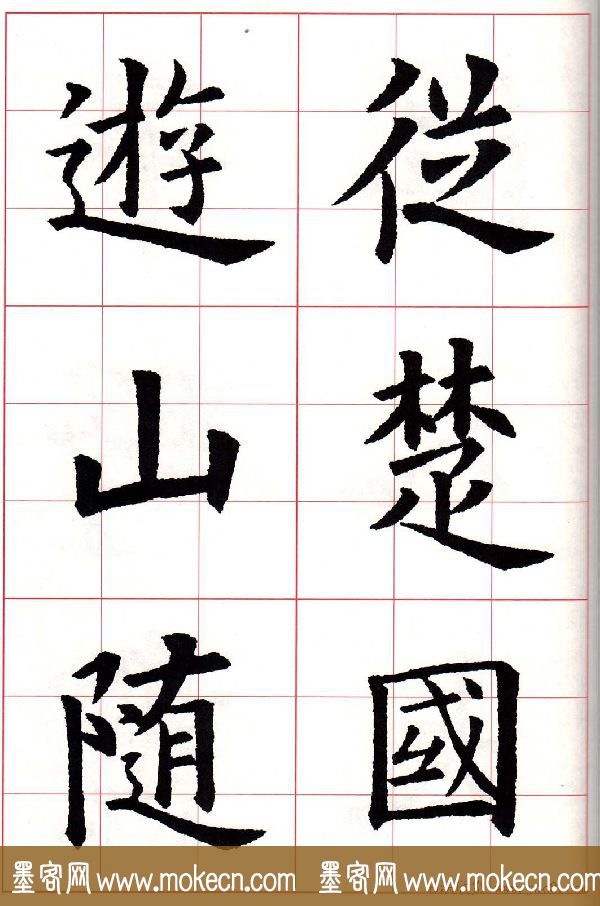 從楚國
遊山随
墨客网 www.mokecn.com 墨客网 www.mokecn.com